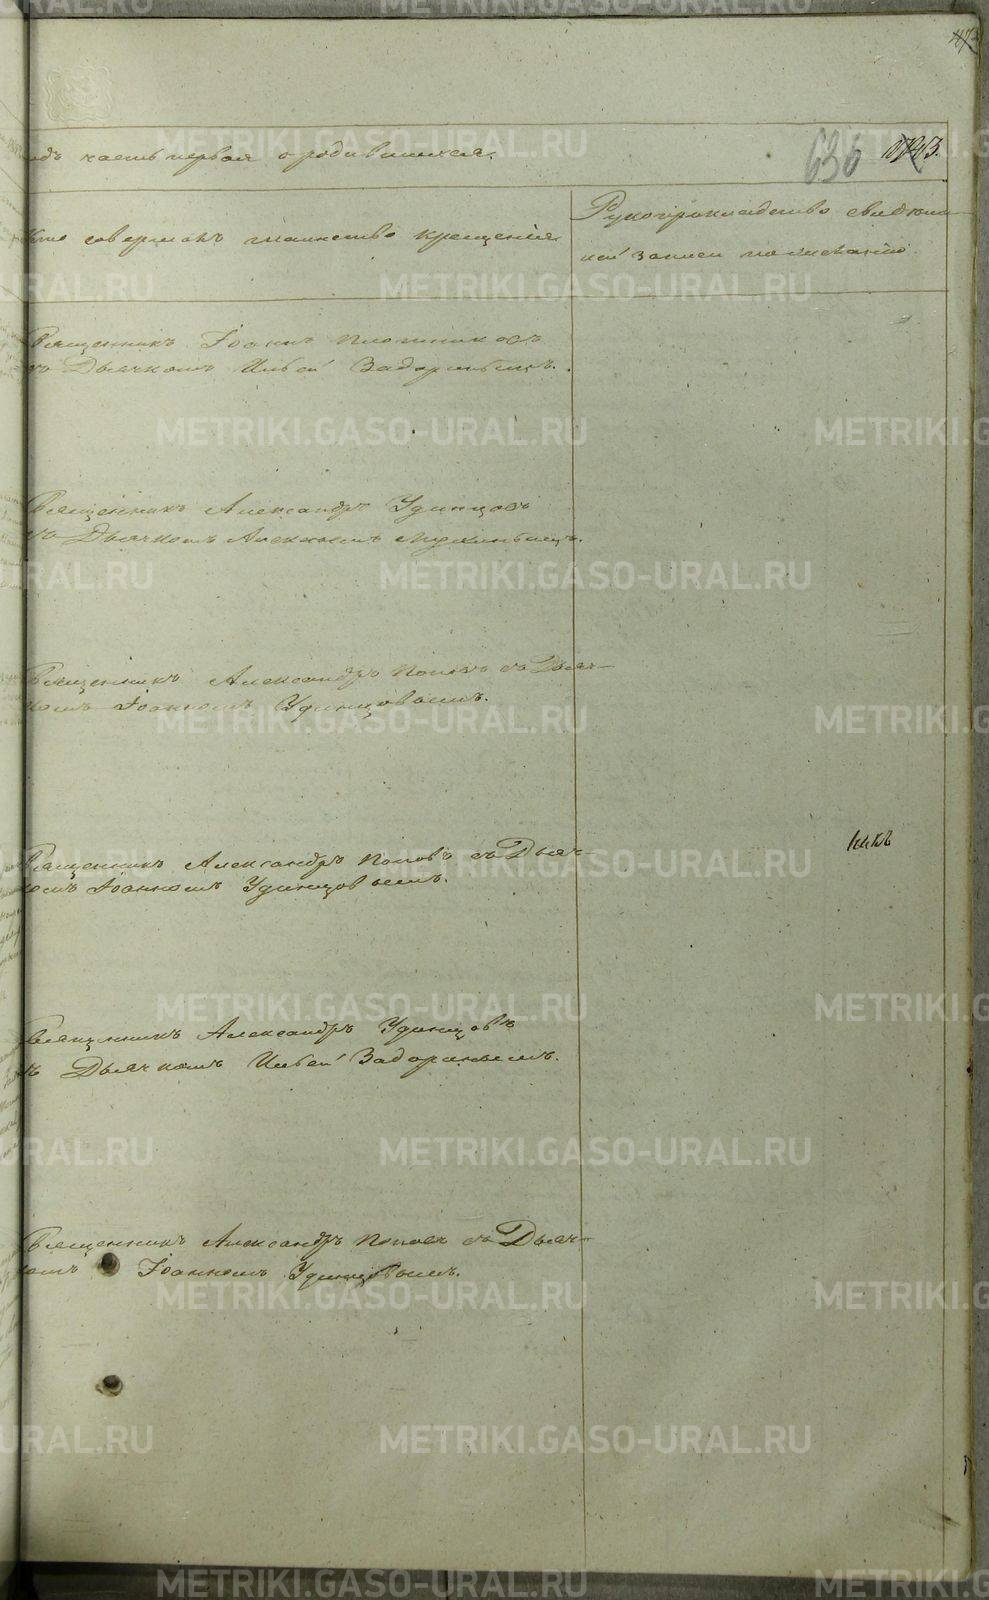 одъ часть первая о родившихся.
636
Кто совершалъ таинство крещенія
Рукоприкладство свидѣте-
лей записи по желанію
Священникъ Іоаннъ Плотниковъ
съ Дьячкомъ Ильей Задоринымъ.
Священникъ Александръ Удинцовъ
съ Дьячкомъ
Священникъ Александръ Поповъ съ Дьяч-
комъ Іоанномъ Удинцовымъ.
Священникъ Александръ Поповъ съ Дьяч-
комъ Іоанномъ Удинцовымъ.
никъ
Священникъ Александръ Удинцовъ
съ Дьячкомъ Ильей Задоринымъ.
Священникъ Александръ Поповъ съ Дьяч-
комъ Іоанномъ Удинцовымъ.
METRIKI.GASO-URAL.RU